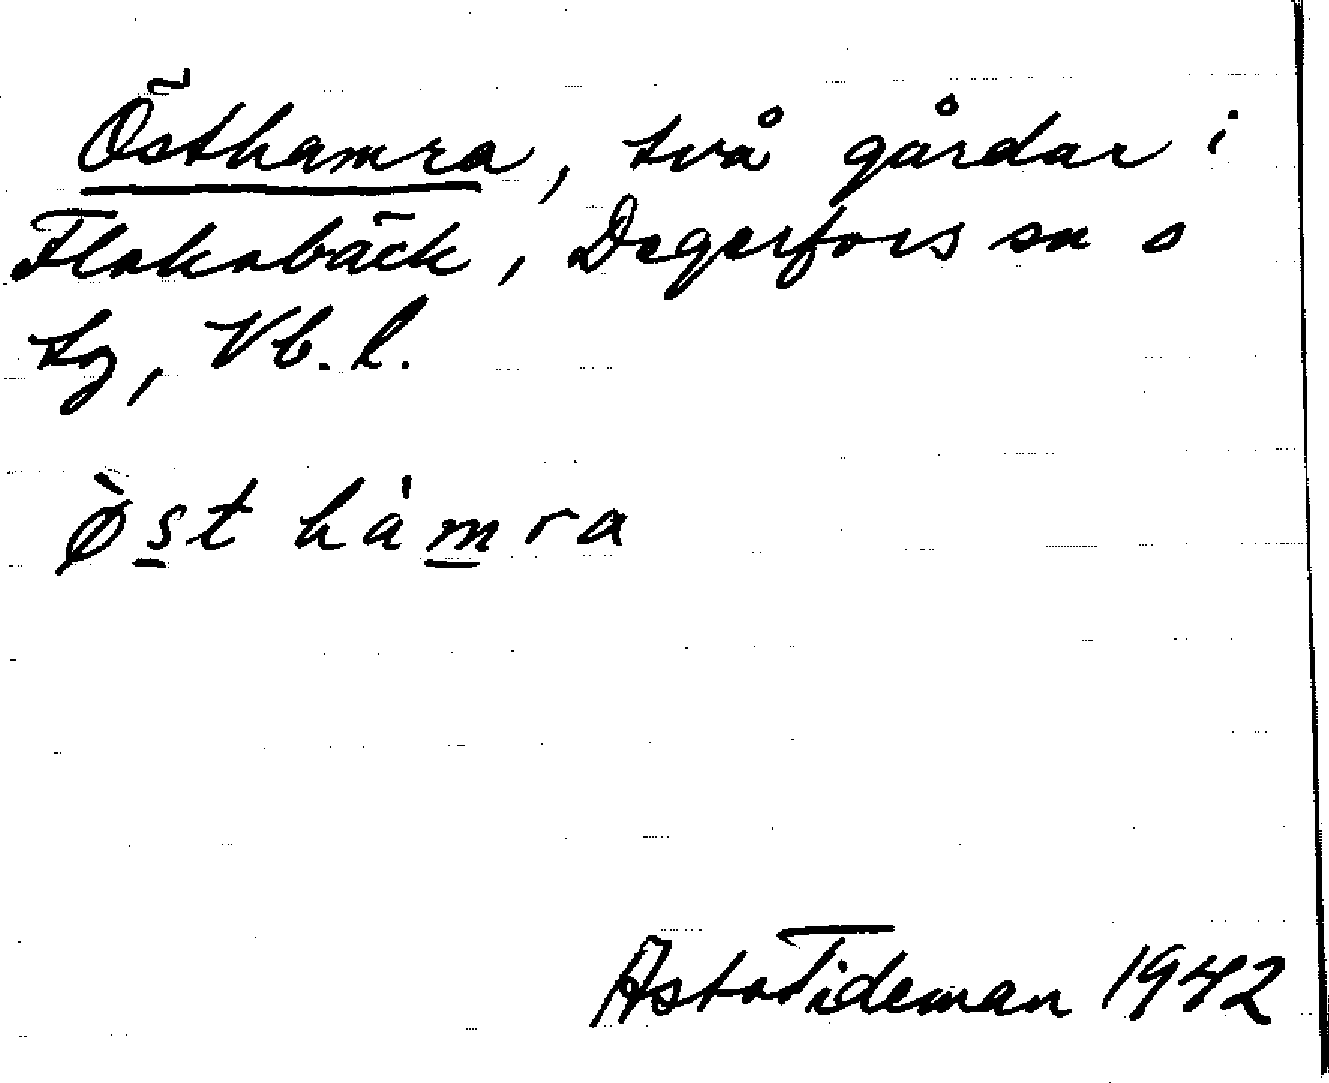 Östhamra, två gårdar i
Flakabäck, Degerfors sn o
tg, Vb. l.
ø̀st hàmra
Asta Tideman 1942